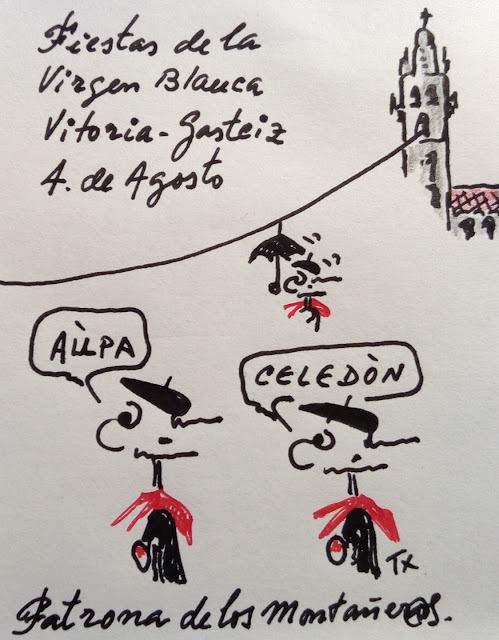 Fiestas de la
Virgen Blanca
Vitoria-Gasteiz
4. de Agosto
AÙPA
CELEDÒN
TX
Patrona de los Montañer@s.